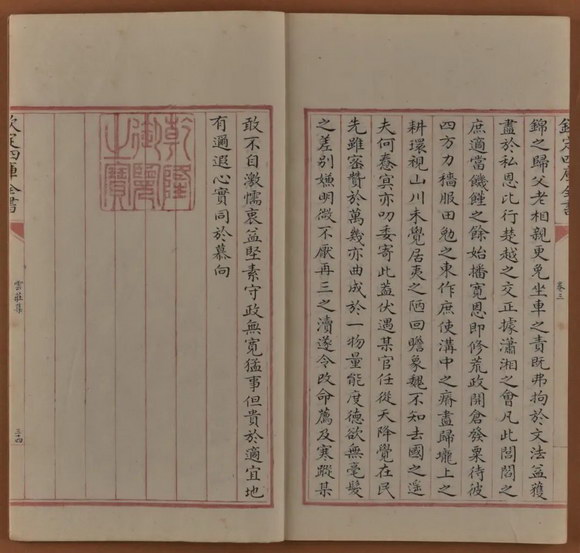 欽定四庫全書
卷三
錦之歸父老相親更免坐車之責既弗拘於文法益獲
盡於私恩比行楚越之交正據瀟湘之會凡此閭閻之
庶適當饑饉之餘始播寬恩即修荒政開倉發粟待彼
四方力穡服田勉之東作庶使溝中之瘠盡歸壠上之
耕環視山川未覺居夷之陋回瞻象魏不知去國之遙
夫何憃冥亦叨委寄此蓋伏遇某官任從天降覺在民
先雖密贊於萬幾亦曲成於一物量能度德欲無毫髮
之差别嫌明微不厭再三之瀆遂令改命薦及寒蹤某
敢不自激懦衷益堅素守政無寛猛事但貴於適宜地
有遐邇心實同於慕向
乾隆御覽之寶
欽定四庫全書
雲莊集